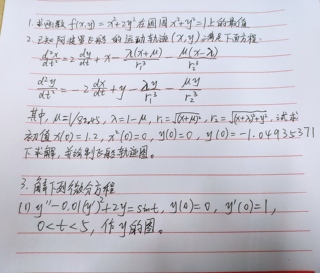 1. 求函数 f(x,y)=x²+2y² 在圆周 x²+y²=1上的最值
2. 已知阿波罗飞船的运动轨迹(x,y)满足下面方程.
d²x/dt² = 2 dy/dt + x - λ(x+μ)/r₁³ - μ(x-λ)/r₂³
d²y/dt² = -2 dx/dt + y - λy/r₁³ - μy/r₂³
其中, μ=1/82.45, λ=1-μ, r₁=√(x+μ)²+y², r₂=√(x+λ)²+y², 试求
初值 x(0)=1.2, x'(0)=0, y(0)=0, y'(0)=-1.04935371
下求解, 并绘制飞船轨迹图。
3. 解下列微分方程
(1) y''-0.01(y')²+2y=sint, y(0)=0, y'(0)=1,
0<t<5, 作y的图。